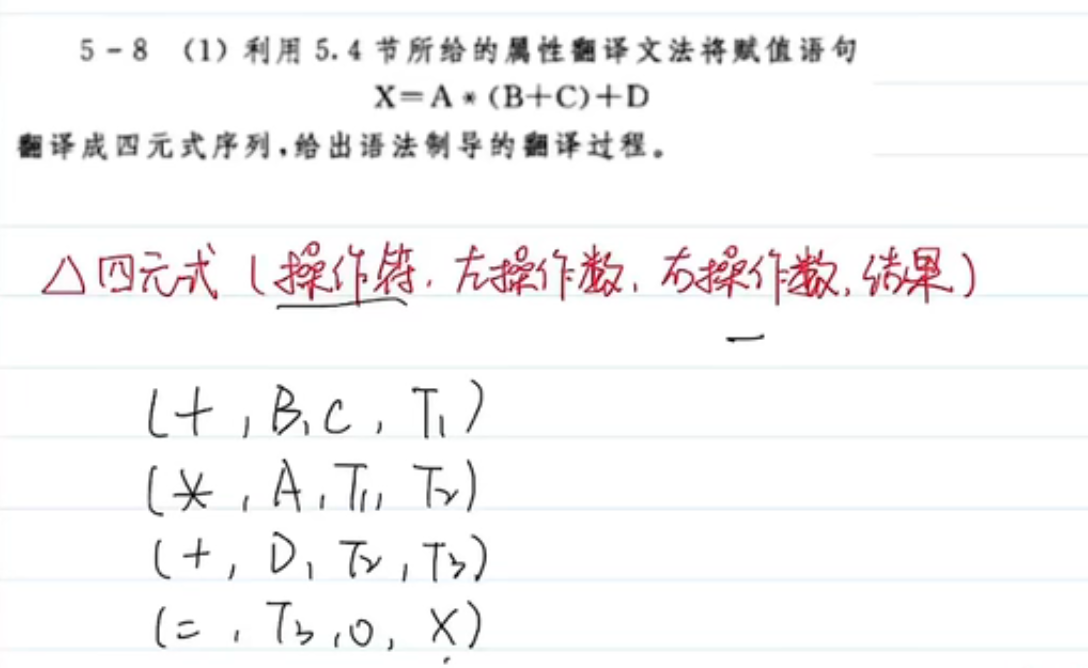 5-8 (1) 利用 5.4 节所给的属性翻译文法将赋值语句
X=A*(B+C)+D
翻译成四元式序列,给出语法制导的翻译过程。
△四元式 (操作符, 左操作数, 右操作数, 结果)
(+, B, C, T₁)
(*, A, T₁, T₂)
(+, D, T₂, T₃)
(=, T₃, 0, X)